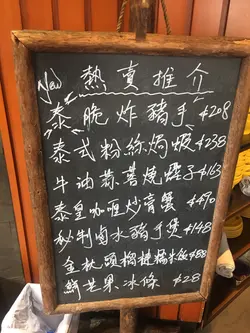 New 熱賣推介
泰脆炸豬手 $208
泰式粉絲焗蝦 $238
牛油蒜蓉燒蟶子 $163
泰皇咖喱炒膏蟹 $470
秘制鹵水豬手煲 $148
金枕頭榴槤糯米飯 $88
鮮芒果冰條 $28